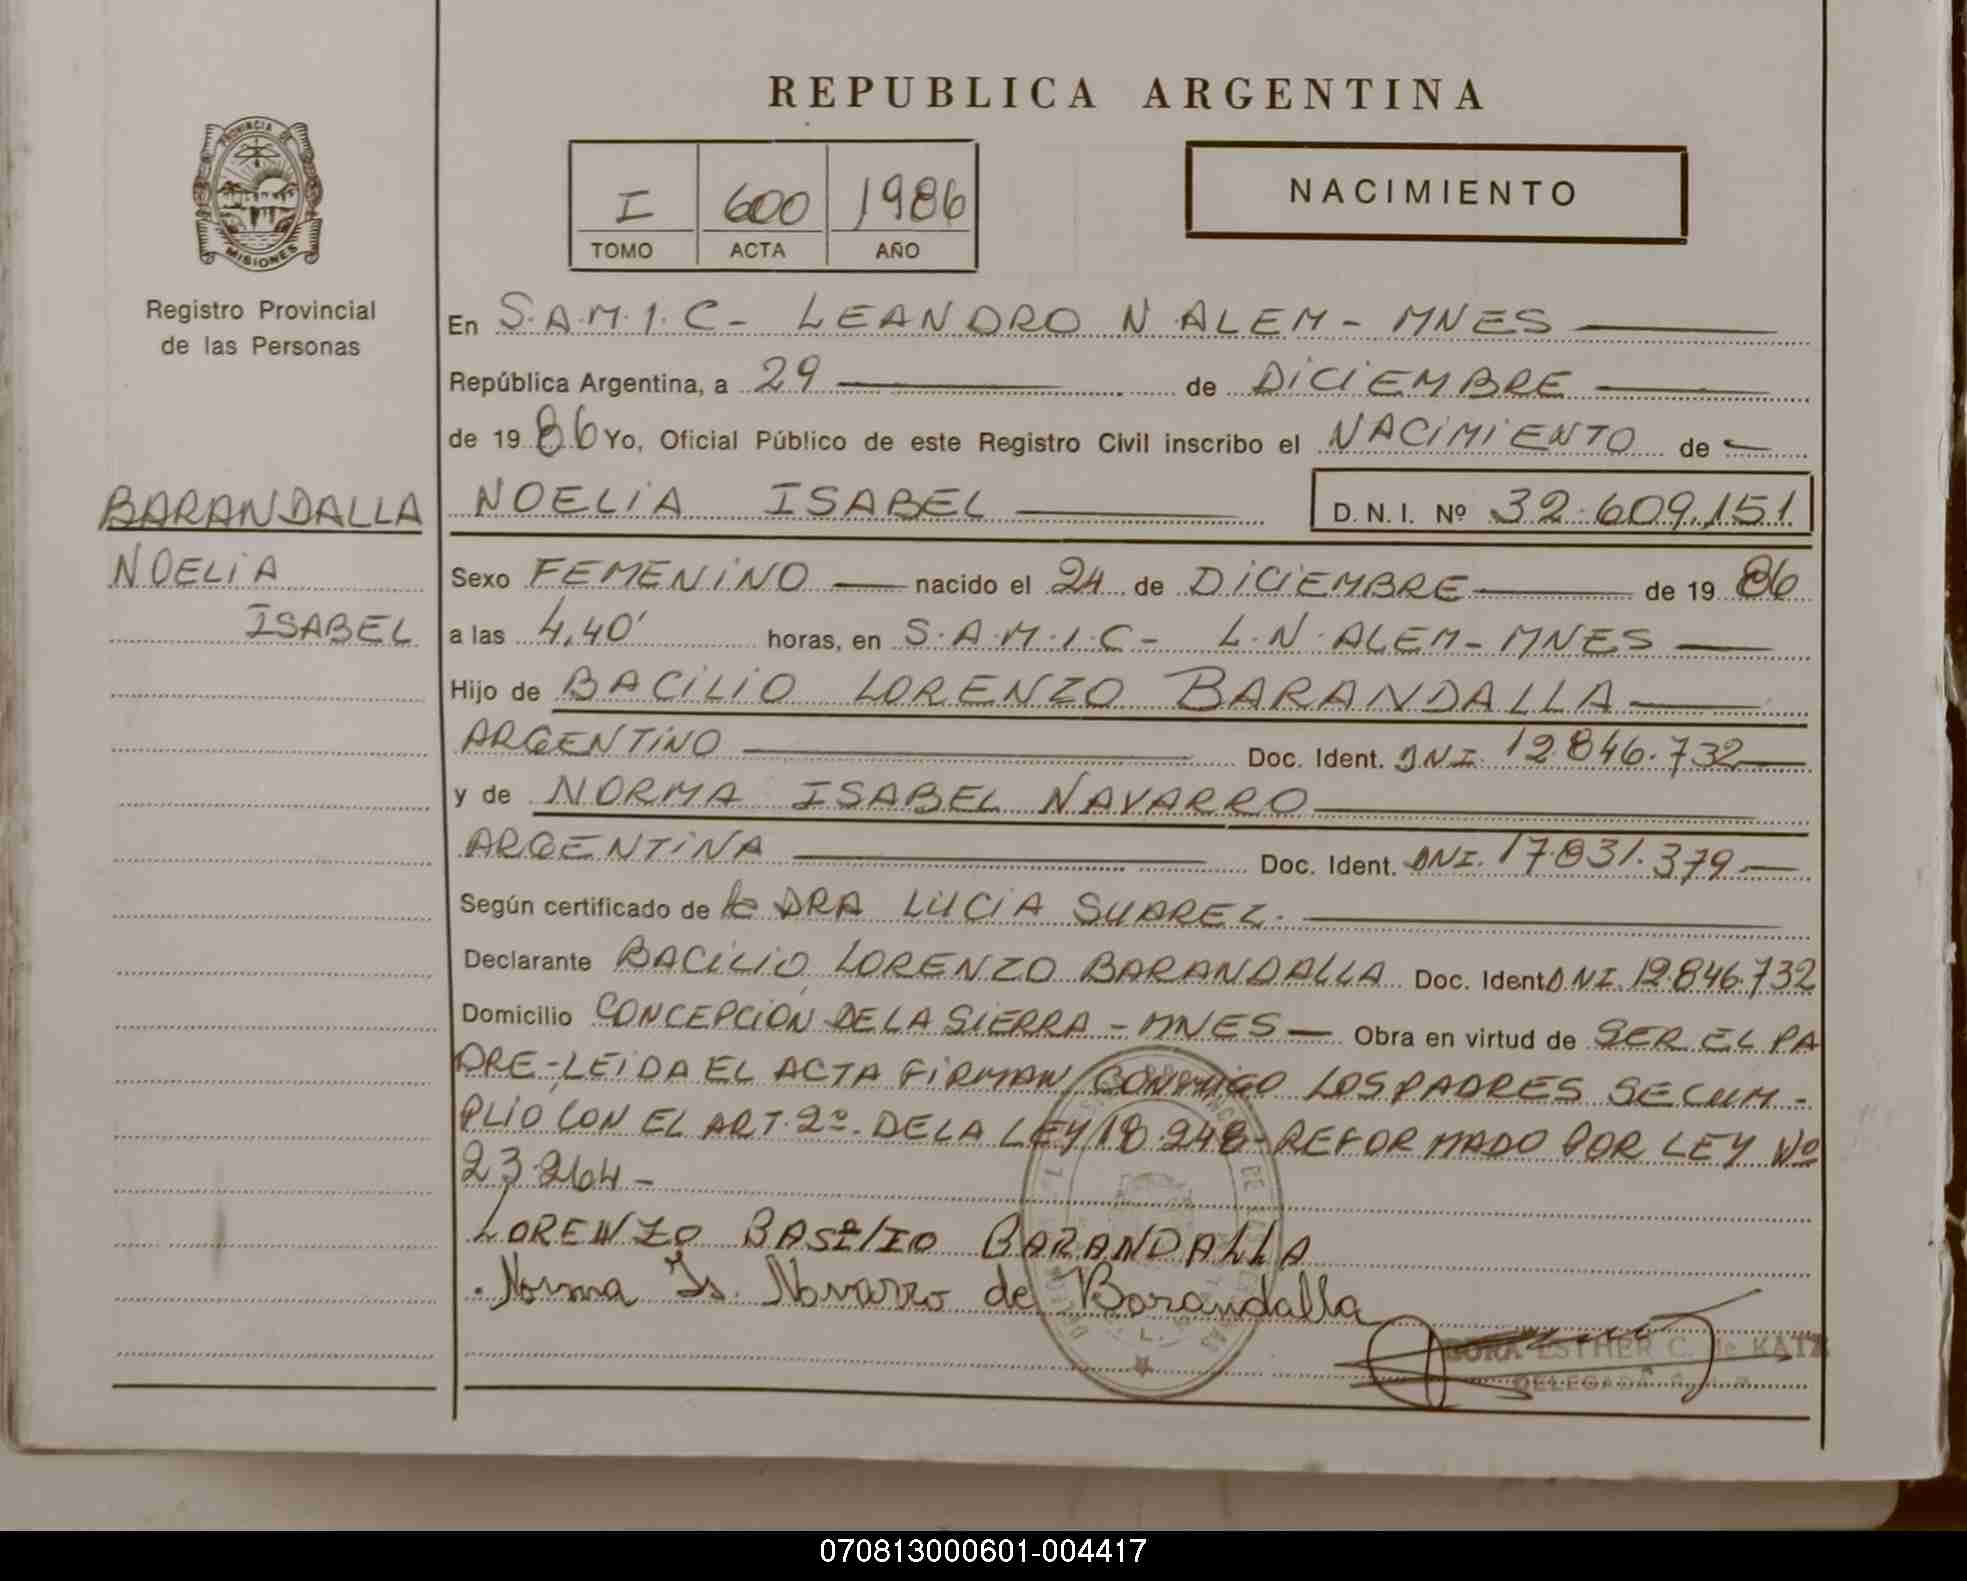 REPUBLICA ARGENTINA
PROVINCIA DE
MISIONES
Registro Provincial
de las Personas
I 600 1986
TOMO ACTA AÑO
NACIMIENTO
En S.A.M.I.C - LEANDRO N ALEM - MNES
República Argentina, a 29 de DICIEMBRE
de 1986 Yo, Oficial Público de este Registro Civil inscribo el NACIMIENTO de
BARANDALLA
NOELIA
ISABEL
NOELIA ISABEL D.N.I. Nº 32.609.151
Sexo FEMENINO nacido el 24 de DICIEMBRE de 1986
a las 4,40' horas, en S.A.M.I.C - L.N.ALEM - MNES
Hijo de BACILIO LORENZO BARANDALLA
ARGENTINO Doc. Ident. DNI. 12.846.732
y de NORMA ISABEL NAVARRO
ARGENTINA Doc. Ident. DNI. 17.831.379
Según certificado de la DRA LUCIA SUAREZ.
Declarante BACILIO LORENZO BARANDALLA Doc. Ident DNI. 12.846.732
Domicilio CONCEPCIÓN DE LA SIERRA - MNES Obra en virtud de SER EL PA
DRE - LEIDA EL ACTA FIRMAN CONMIGO LOS PADRES SE CUM -
PLIO CON EL ART. 2º. DE LA LEY 18.248 - REFORMADO POR LEY Nº
23.264 -
LORENZO BASILIO BARANDALLA
Norma Is. Navarro de Barandalla
ESTHER C. de KATZ
DELEGADA
070813000601-004417